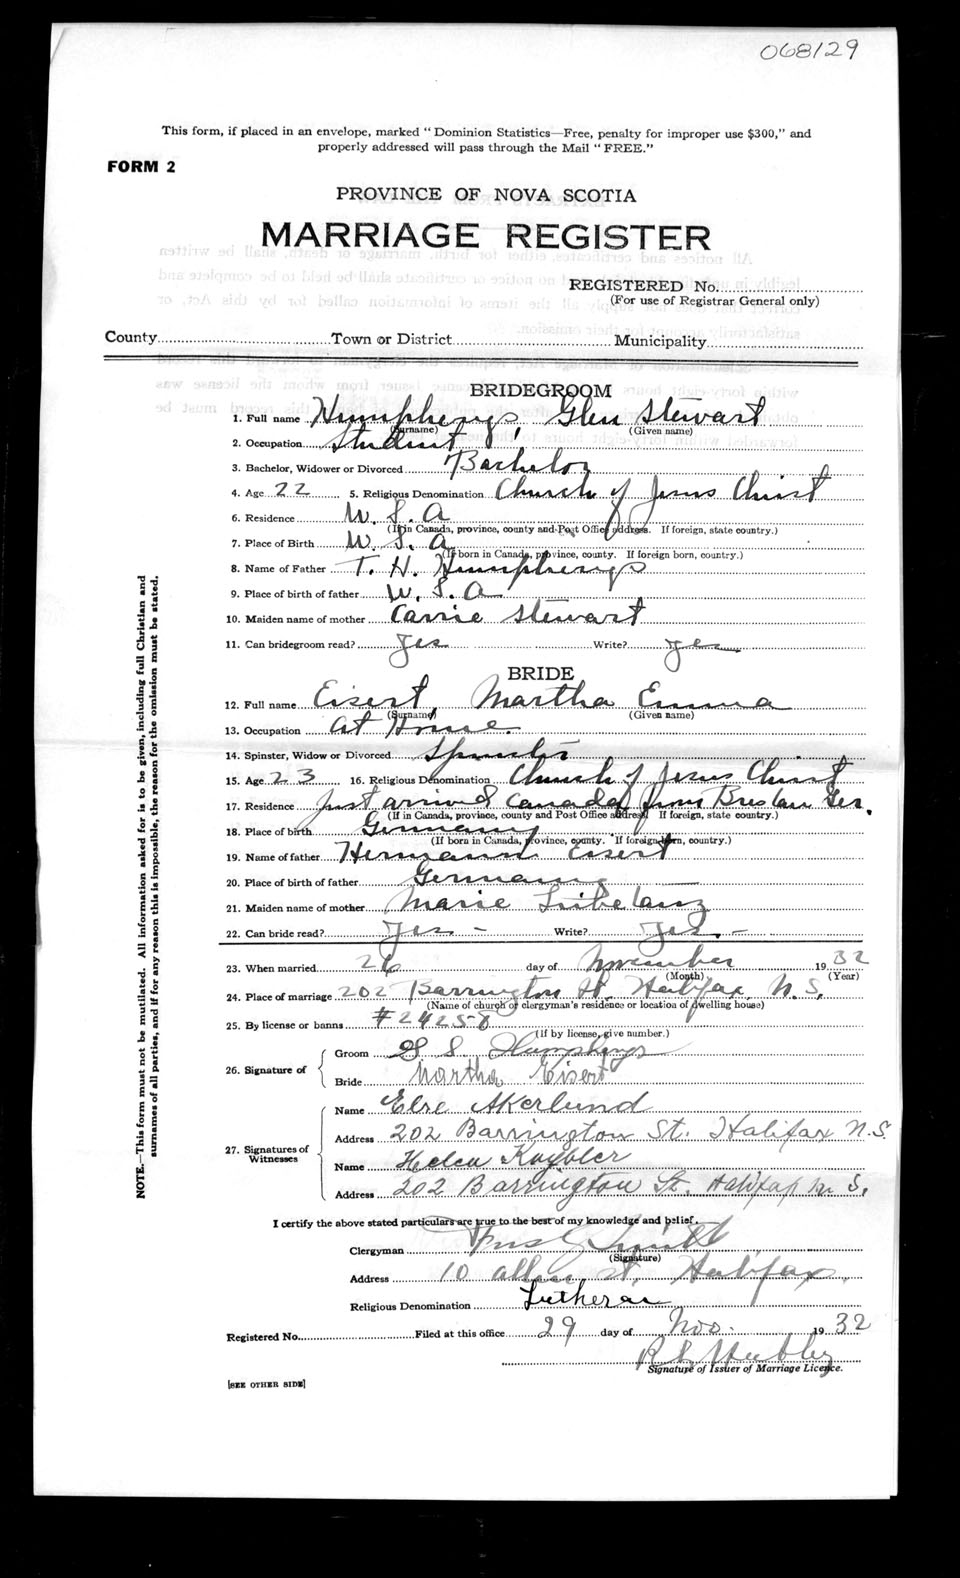 068129
This form, if placed in an envelope, marked "Dominion Statistics—Free, penalty for improper use $300," and
properly addressed will pass through the Mail "FREE."
FORM 2
PROVINCE OF NOVA SCOTIA
MARRIAGE REGISTER
REGISTERED No.
(For use of Registrar General only)
County Town or District Municipality
BRIDEGROOM
1. Full name Humpherys, Glen Stewart
(Surname) (Given name)
2. Occupation Student
3. Bachelor, Widower or Divorced Bachelor
4. Age 22 5. Religious Denomination Church of Jesus Christ
6. Residence U. S. A
(If in Canada, province, county and Post Office address. If foreign, state country.)
7. Place of Birth U. S. A
(If born in Canada, province, county. If foreign born, country.)
8. Name of Father T. H. Humpherys
9. Place of birth of father U. S. A
10. Maiden name of mother Carrie Stewart
11. Can bridegroom read? Yes Write? Yes
BRIDE
12. Full name Eisert, Martha Emma
(Surname) (Given name)
13. Occupation At Home.
14. Spinster, Widow or Divorced Spinster
15. Age 23 16. Religious Denomination Church of Jesus Christ
17. Residence Just arrived Canada from Breslau Ger.
(If in Canada, province, county and Post Office address. If foreign, state country.)
18. Place of birth Germany
(If born in Canada, province, county. If foreign born, country.)
19. Name of father Hermann Eisert
20. Place of birth of father Germany
21. Maiden name of mother Marie
22. Can bride read? Yes - Write? Yes. -
23. When married 26 day of November 1932
(Month) (Year)
24. Place of marriage 202 Barrington St. Halifax, N. S.
(Name of church or clergyman's residence or location of dwelling house)
25. By license or banns #24258
(If by license, give number.)
26. Signature of
Groom G S Humpherys
Bride Martha Eisert
27. Signatures of Witnesses
Name Else Akerlund
Address 202 Barrington St. Halifax N.S.
Name Helen
Address 202 Barrington St. Halifax N. S.
I certify the above stated particulars are true to the best of my knowledge and belief.
Clergyman
(Signature)
Address 10 Allen St. Halifax.
Religious Denomination Lutheran
Registered No. Filed at this office 29 day of Nov. 1932
Signature of Issuer of Marriage Licence.
[SEE OTHER SIDE]
NOTE.—This form must not be mutilated. All information asked for is to be given, including full Christian and
surnames of all parties, and if for any reason this is impossible, the reason for the omission must be stated.